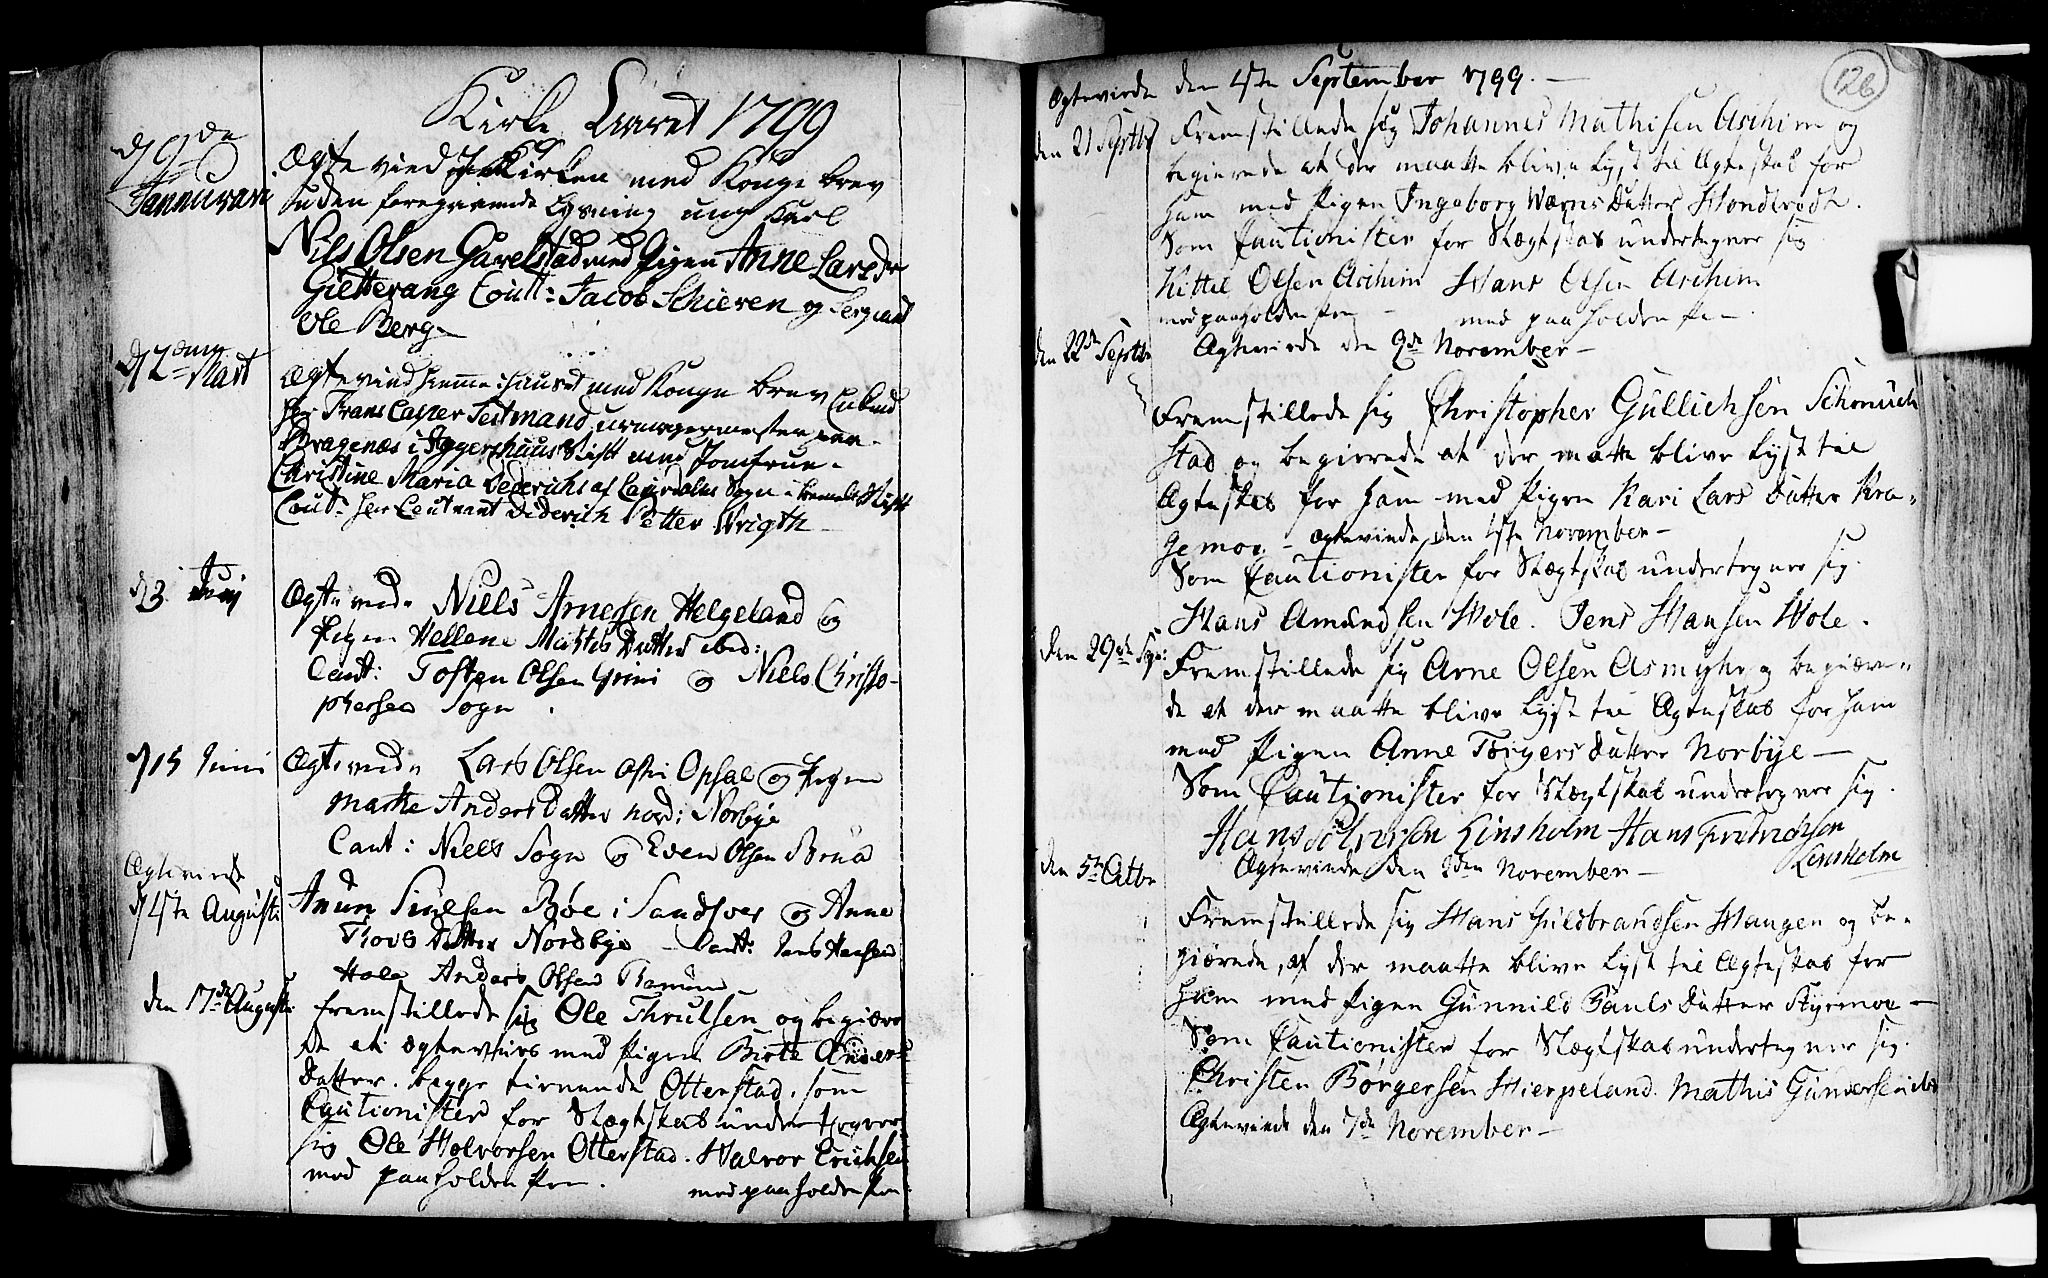 Kirke Aaret 1799
d 9de Januuari
Ægteviet I Kirken med Konge brev
uden foregaaende Lysning ung Karl
Nils Olsen Garelstad med Pigen Anne Larsdr
Gietterang Caut: Jacob Schieven og Sergiant
Ole Berg
d 12 Mart
Ægteviet hiemme i huuset med Konge brev
Hr. Frans Casper Sestmand
Bragenæs i Aggershuus Stift med Jomfrue
Christine Maria Dederichs af Laurdahls Sogn i bemelte Stift
Caut: Hr Leutnant Diderich Petter Wrigth
d 3 Junij
Ægteviede Niels Arnessen Helgeland og
Pigen Hellene Mathis Datter ibid:
Caut: Tosten Olsen Grini og Niels Christo-
phersen Sogn.
d 15 Junii
Ægteviede Lars Olsen Opsal og Pigen
Marthe Anders Datter nord: Norbye
Caut: Niels Sogn og Even Olsen Brua
Ægteviede d 4de Augusti
Anun Siulsen Böe i Sandsver og Anne
Thovs Datter Nordbye - Caut: Jens Hansen
Hole Anders Olsen
den 17de Augusti
Fremstillede sig Ole Thrulsen og begiære
de at ægtevies med Pigen Birte Anders
Datter. begge tienende Otterstad. som
Cautionister for Slægtskab undertegner
sig Ole Holvorsen Otterstad. Halvor Erichsen
med paaholden Pen. med paaholden Pen
126
Ægteviede den 4de September 1799. —
den 21 Septbr
Fremstillede sig Johannes Mathisen Aschim og
begierede at der maatte blive lyst til Ægteskab for
ham med Pigen Ingeborg Wærns Datter Honderødt.
Som Cautionister for Slægtskab undertegner sig
Kittel Olsen Aschim Hans Olsen Aschim
med paaholden Pen - med paaholden Pen.
Ægteviede den 9de November —
den 22de Septbr
Fremstillede sig Christopher Gullichsen Schonuch
stad og begierede at der matte blive lyst til
Ægteskab for ham med Pigen Kari Lars Datter Kra-
gemoe - Ægteviede den 4de November —
Som Cautionister for Slægtskab undertegner sig.
Hans Amundsen Hole. Jens Hansen Hole.
den 29de Sept:
Fremstillede sig Arne Olsen Asmyhr og begiære-
de at der maatte blive lyst til Ægteskab for ham
med Pigen Anne Torgers Datter Norbye —
Som Cautionister for Slægtskab undertegner sig.
Hans Sölversen Linsholm Hans Fredrichsen
Linsholm
Ægteviede den 2den November —
den 5te Octbr
Fremstillede sig Hans Guldbrandsen Haugen og be-
giærede, at der maatte blive lyst til Ægteskab for
ham med Pigen Gunnild Pauls Datter Styrmoe —
Som Cautionister for Slægtskab undertegner sig.
Christen Börgersen Hierpeland. Mathis Gundersen ibd
Ægteviede den 7de November —